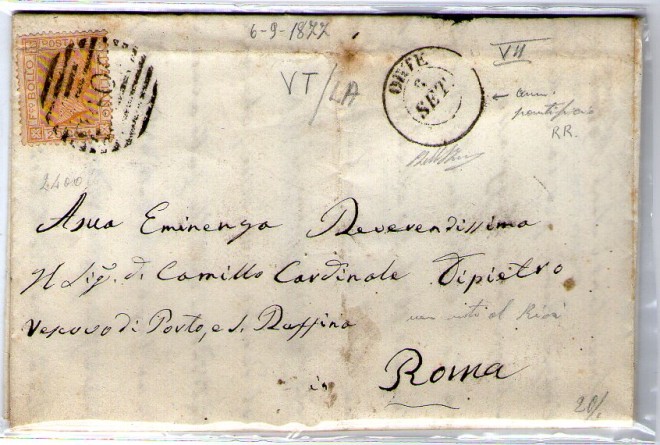 6-9-1877
POSTA
BOLLO
VT/LA
ORTE
6
SET.
VII
RR.
2400
A sua Eminenza Reverendissima
Il Sig. di Camillo Cardinale Dipietro
Vescovo di Porto, e S. Ruffina
in Roma
20/.